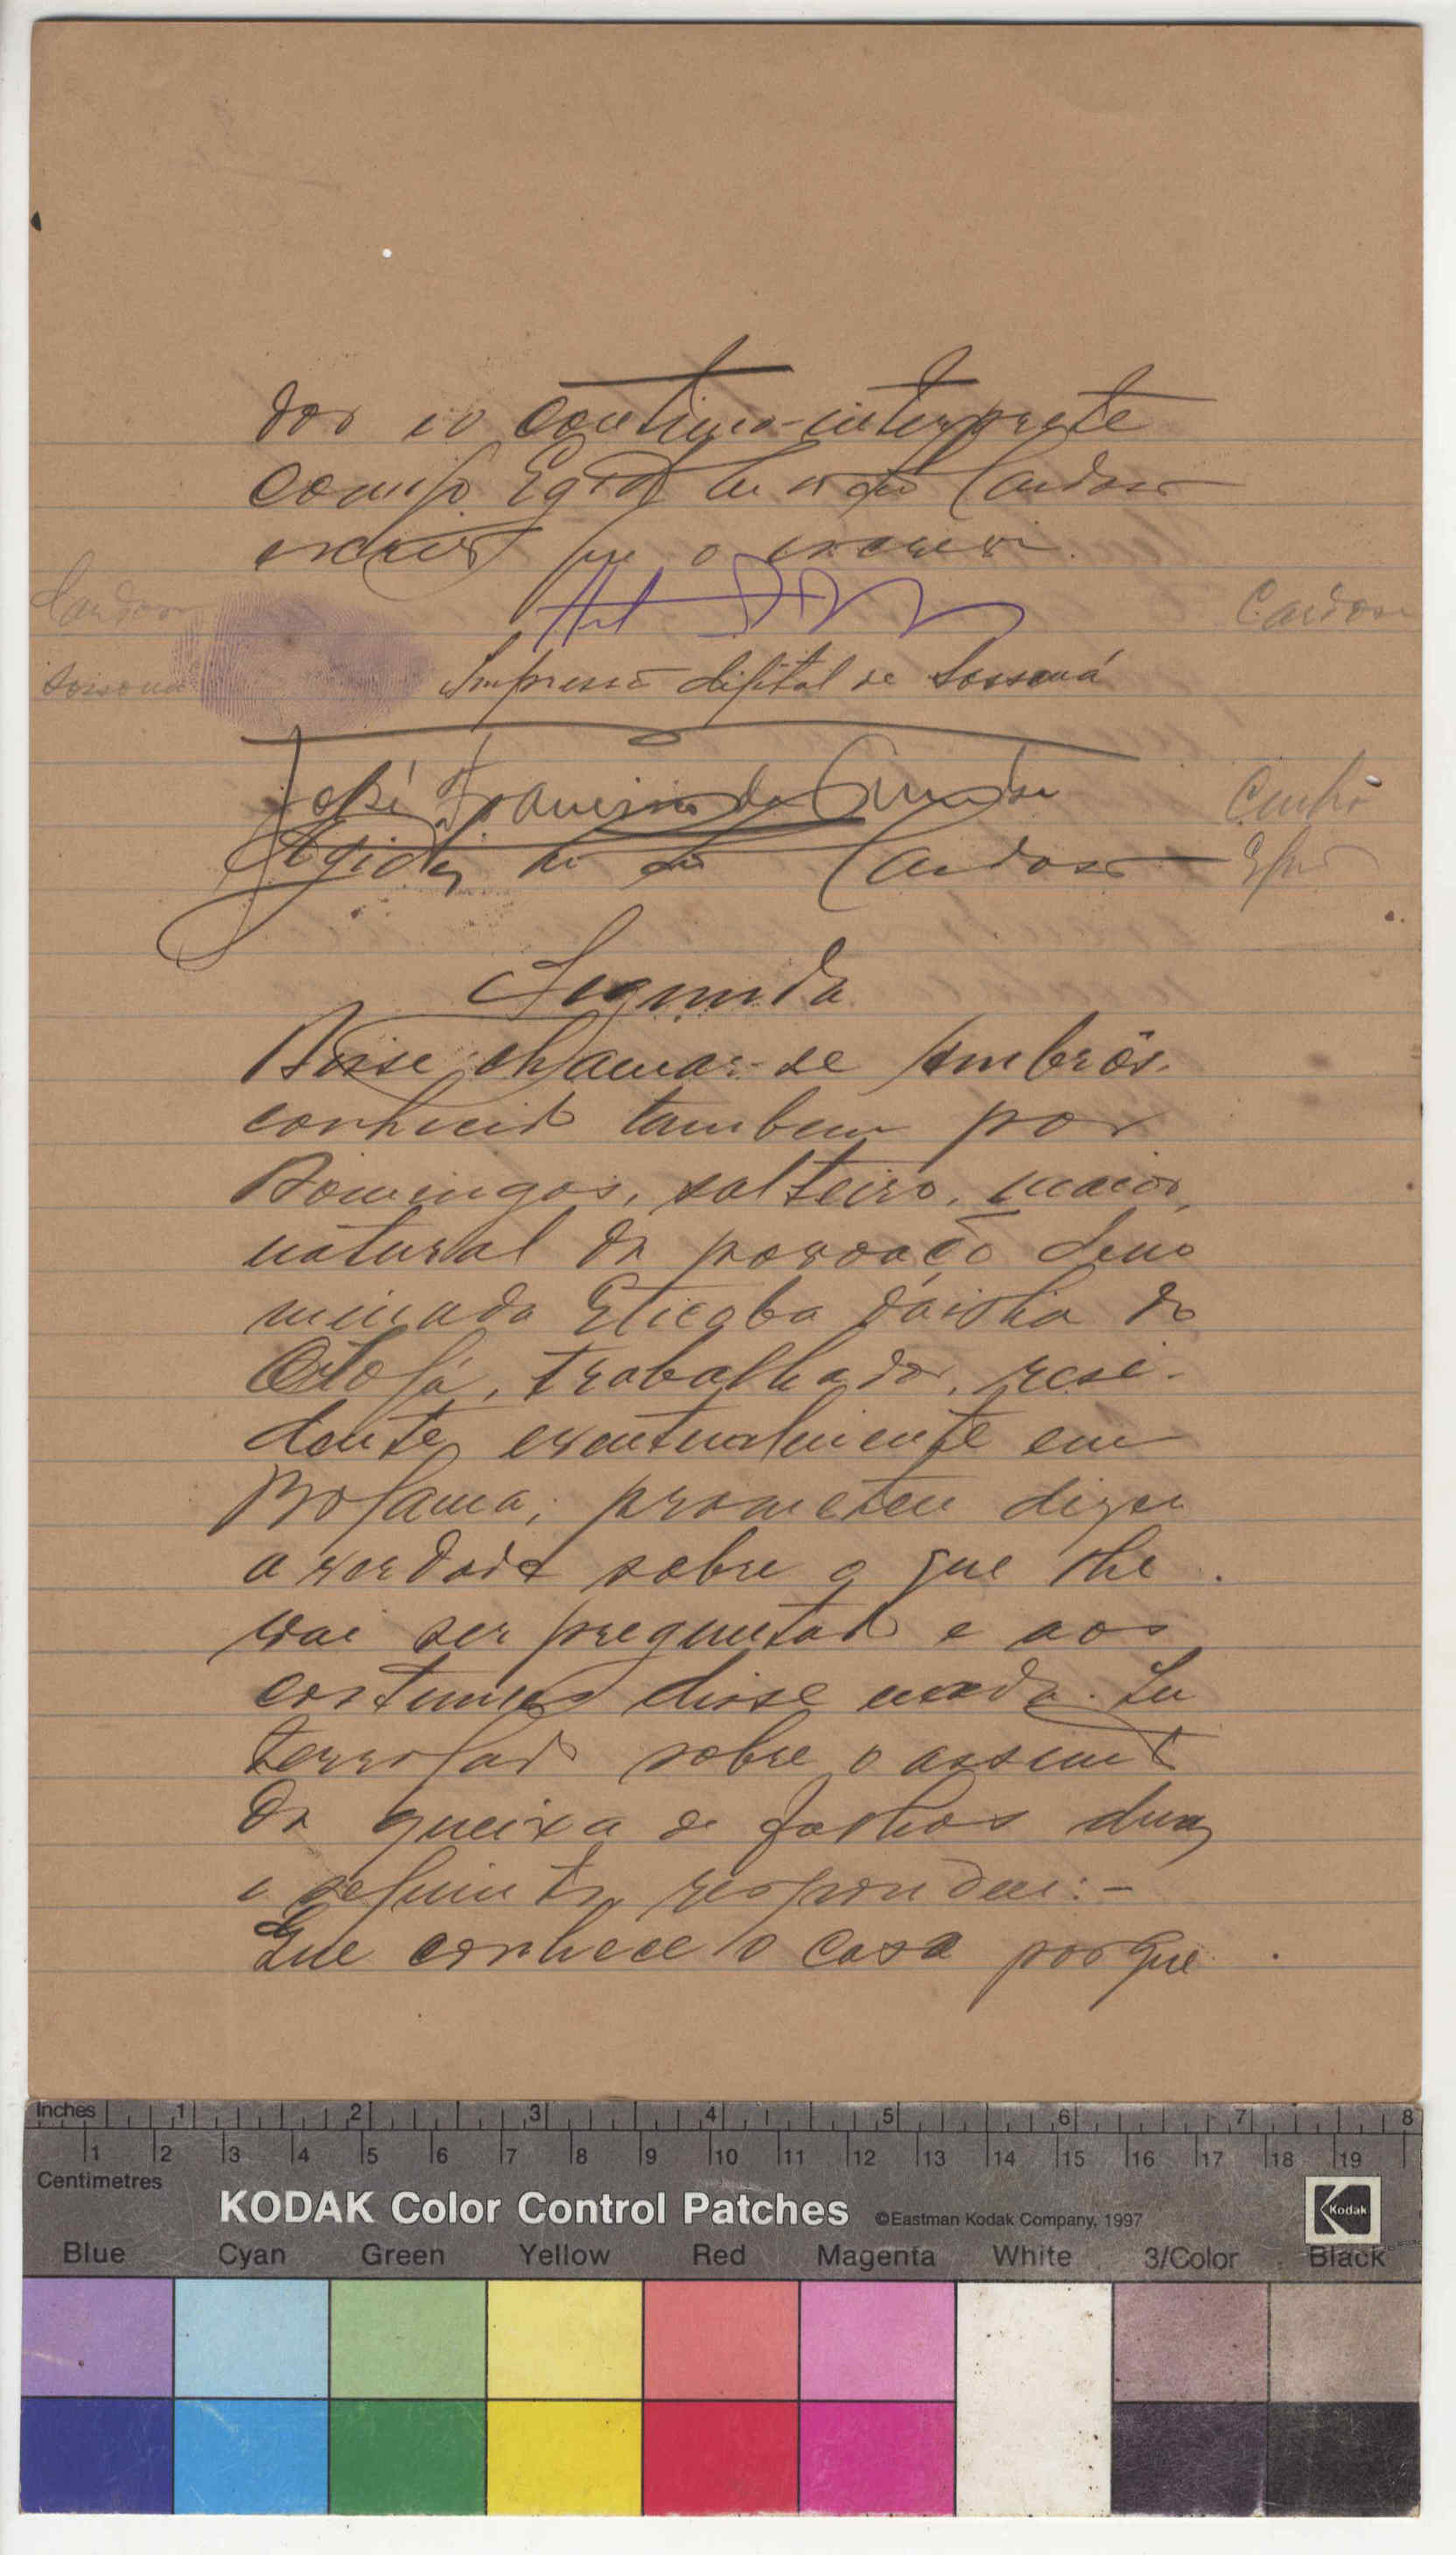 dor e o continuo-interprete
comigo Egidio Cardoso
escrivão que o escrevi.
Cardoso
Cardoso
Sossouá
Impressão digital de Sossouá
José Francisco da Cunha
Cunha
Egidio Cardoso
Segunda
Disse chamar-se Ambrós,
conhecido tambem por
Domingos, solteiro, maior,
natural da povoação deno
minada Eticoba da ilha de
trabalhador, resi-
dente eventualmente em
Bolama; prometeu dizer
a verdade sobre o que lhe
vai ser preguntado e aos
costumes disse nada. In
terrogado sobre o assunto
da queixa de folhas duas
e seguintes respondeu:-
Que conhece o caso porque
Inches 1 2 3 4 5 6 7 8
1 2 3 4 5 6 7 8 9 10 11 12 13 14 15 16 17 18 19
Centimetres
KODAK Color Control Patches ©Eastman Kodak Company, 1997 Kodak
Blue Cyan Green Yellow Red Magenta White 3/Color Black